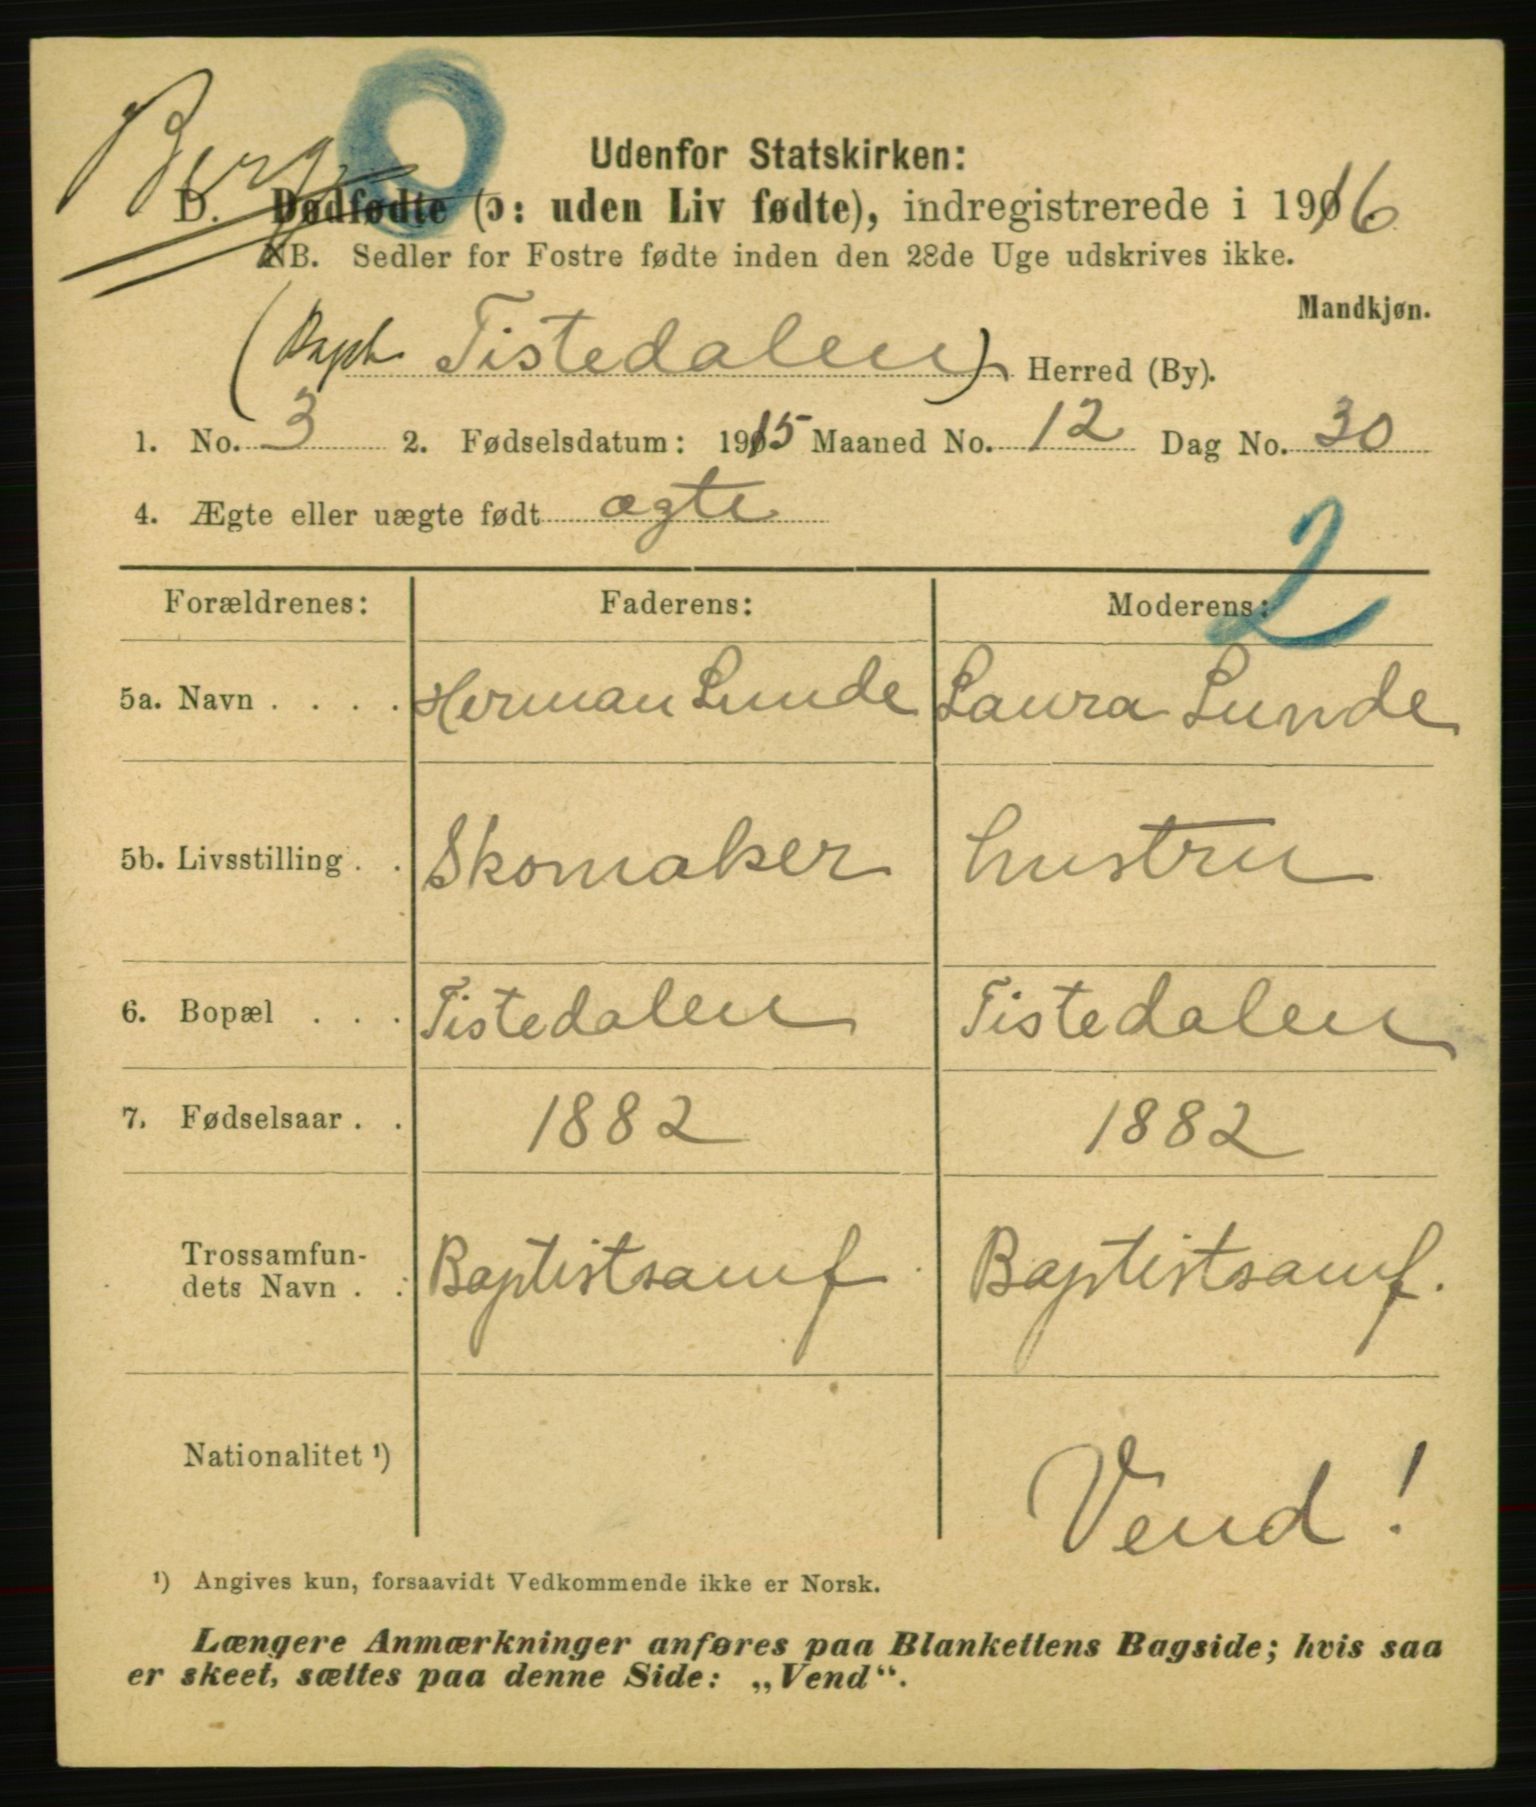 Berg
O
Udenfor Statskirken:
D. Dødfødte (ɔ: uden Liv fødte), indregistrerede i 1916
NB. Sedler for Fostre fødte inden den 28de Uge udskrives ikke.
Mandkjøn.
(Bapt. Tistedalen) Herred (By).
1. No. 3 2. Fødselsdatum: 1915 Maaned No. 12 Dag No. 30
4. Ægte eller uægte født ægte
2
Forældrenes: Faderens: Moderens:
5a. Navn . . . . Herman Lunde Laura Lunde
5b. Livsstilling . . Skomaker hustru
6. Bopæl . . . Tistedalen Tistedalen
7. Fødselsaar . . 1882 1882
Trossamfun-
dets Navn . . Baptistsamf. Baptistsamf.
Nationalitet ¹)
Vend!
¹) Angives kun, forsaavidt Vedkommende ikke er Norsk.
Længere Anmærkninger anføres paa Blankettens Bagside; hvis saa
er skeet, sættes paa denne Side: „Vend“.